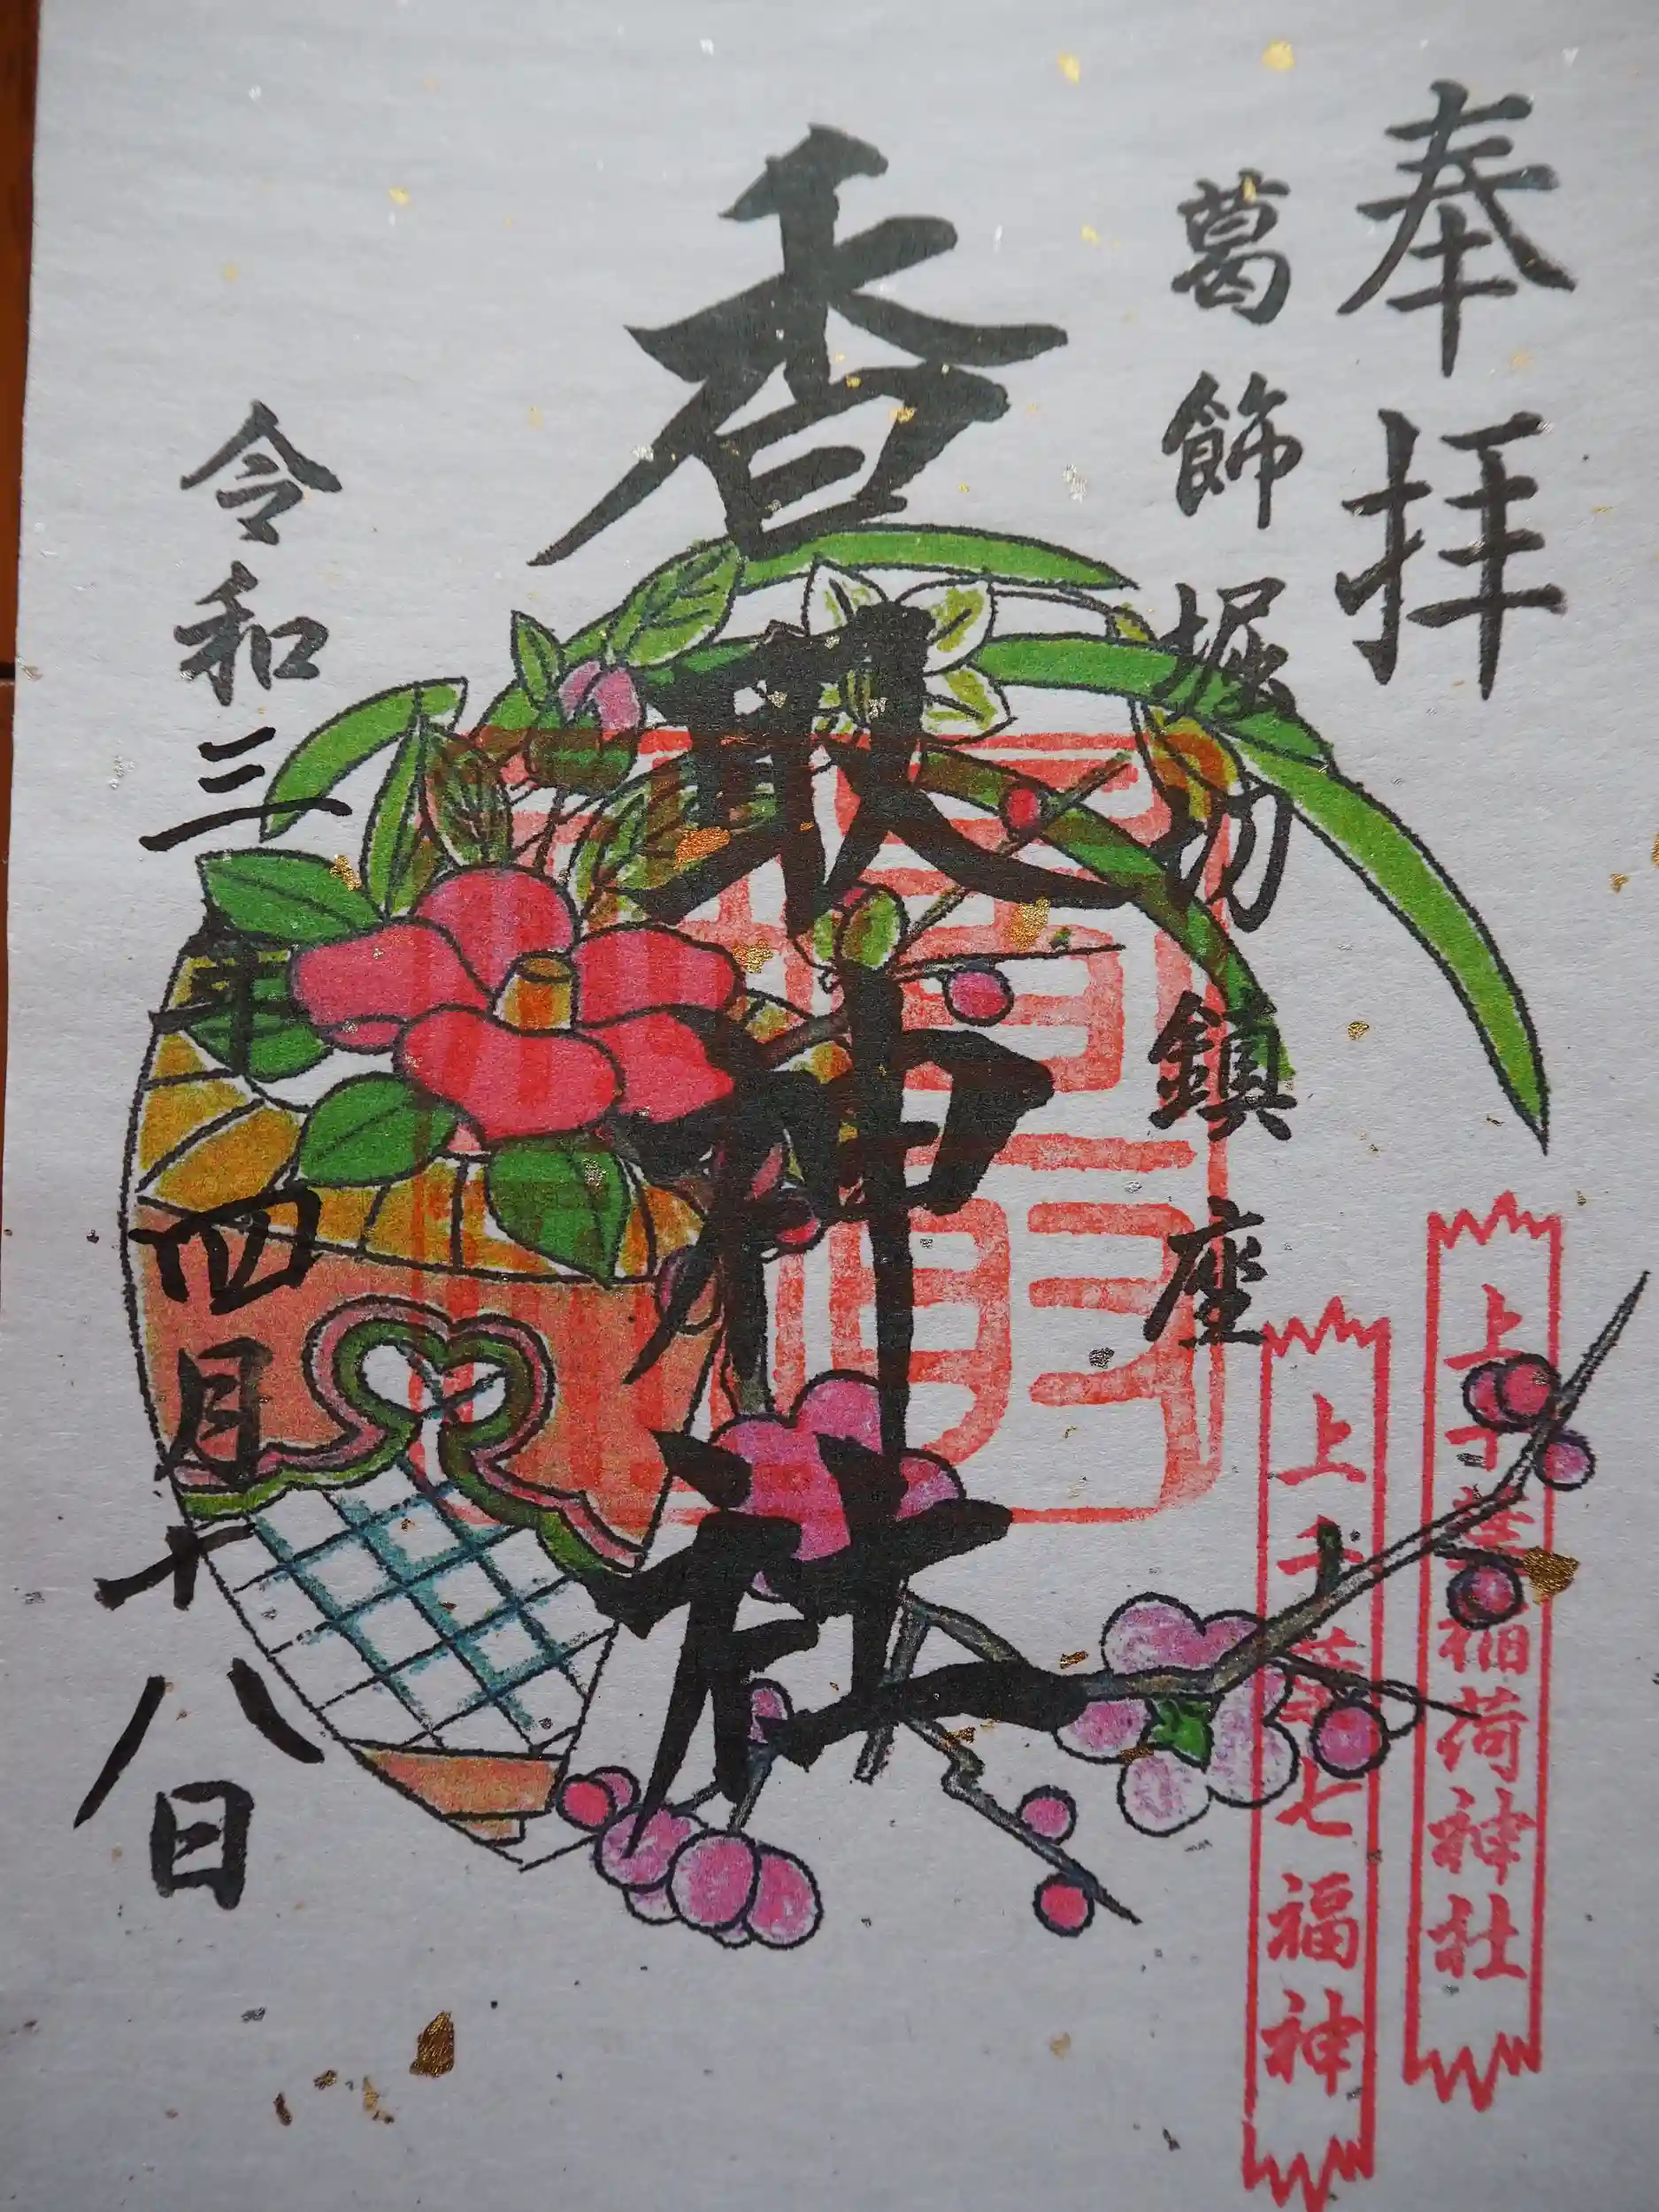 奉拝
葛飾堀切鎮座
香取神社
令和三年四月十八日
上千葉稲荷神社
上千葉七福神